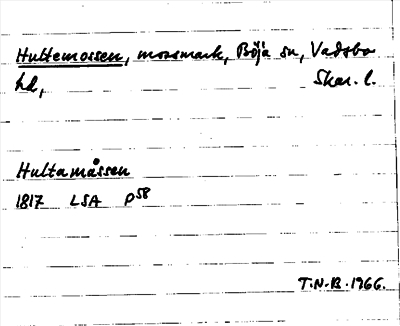 Hultemossen, mossmark, Böja sn, Vadsbo
hd, Skar. l.
Hultamåssen
1817 LSA P58
T.N-B. 1966.